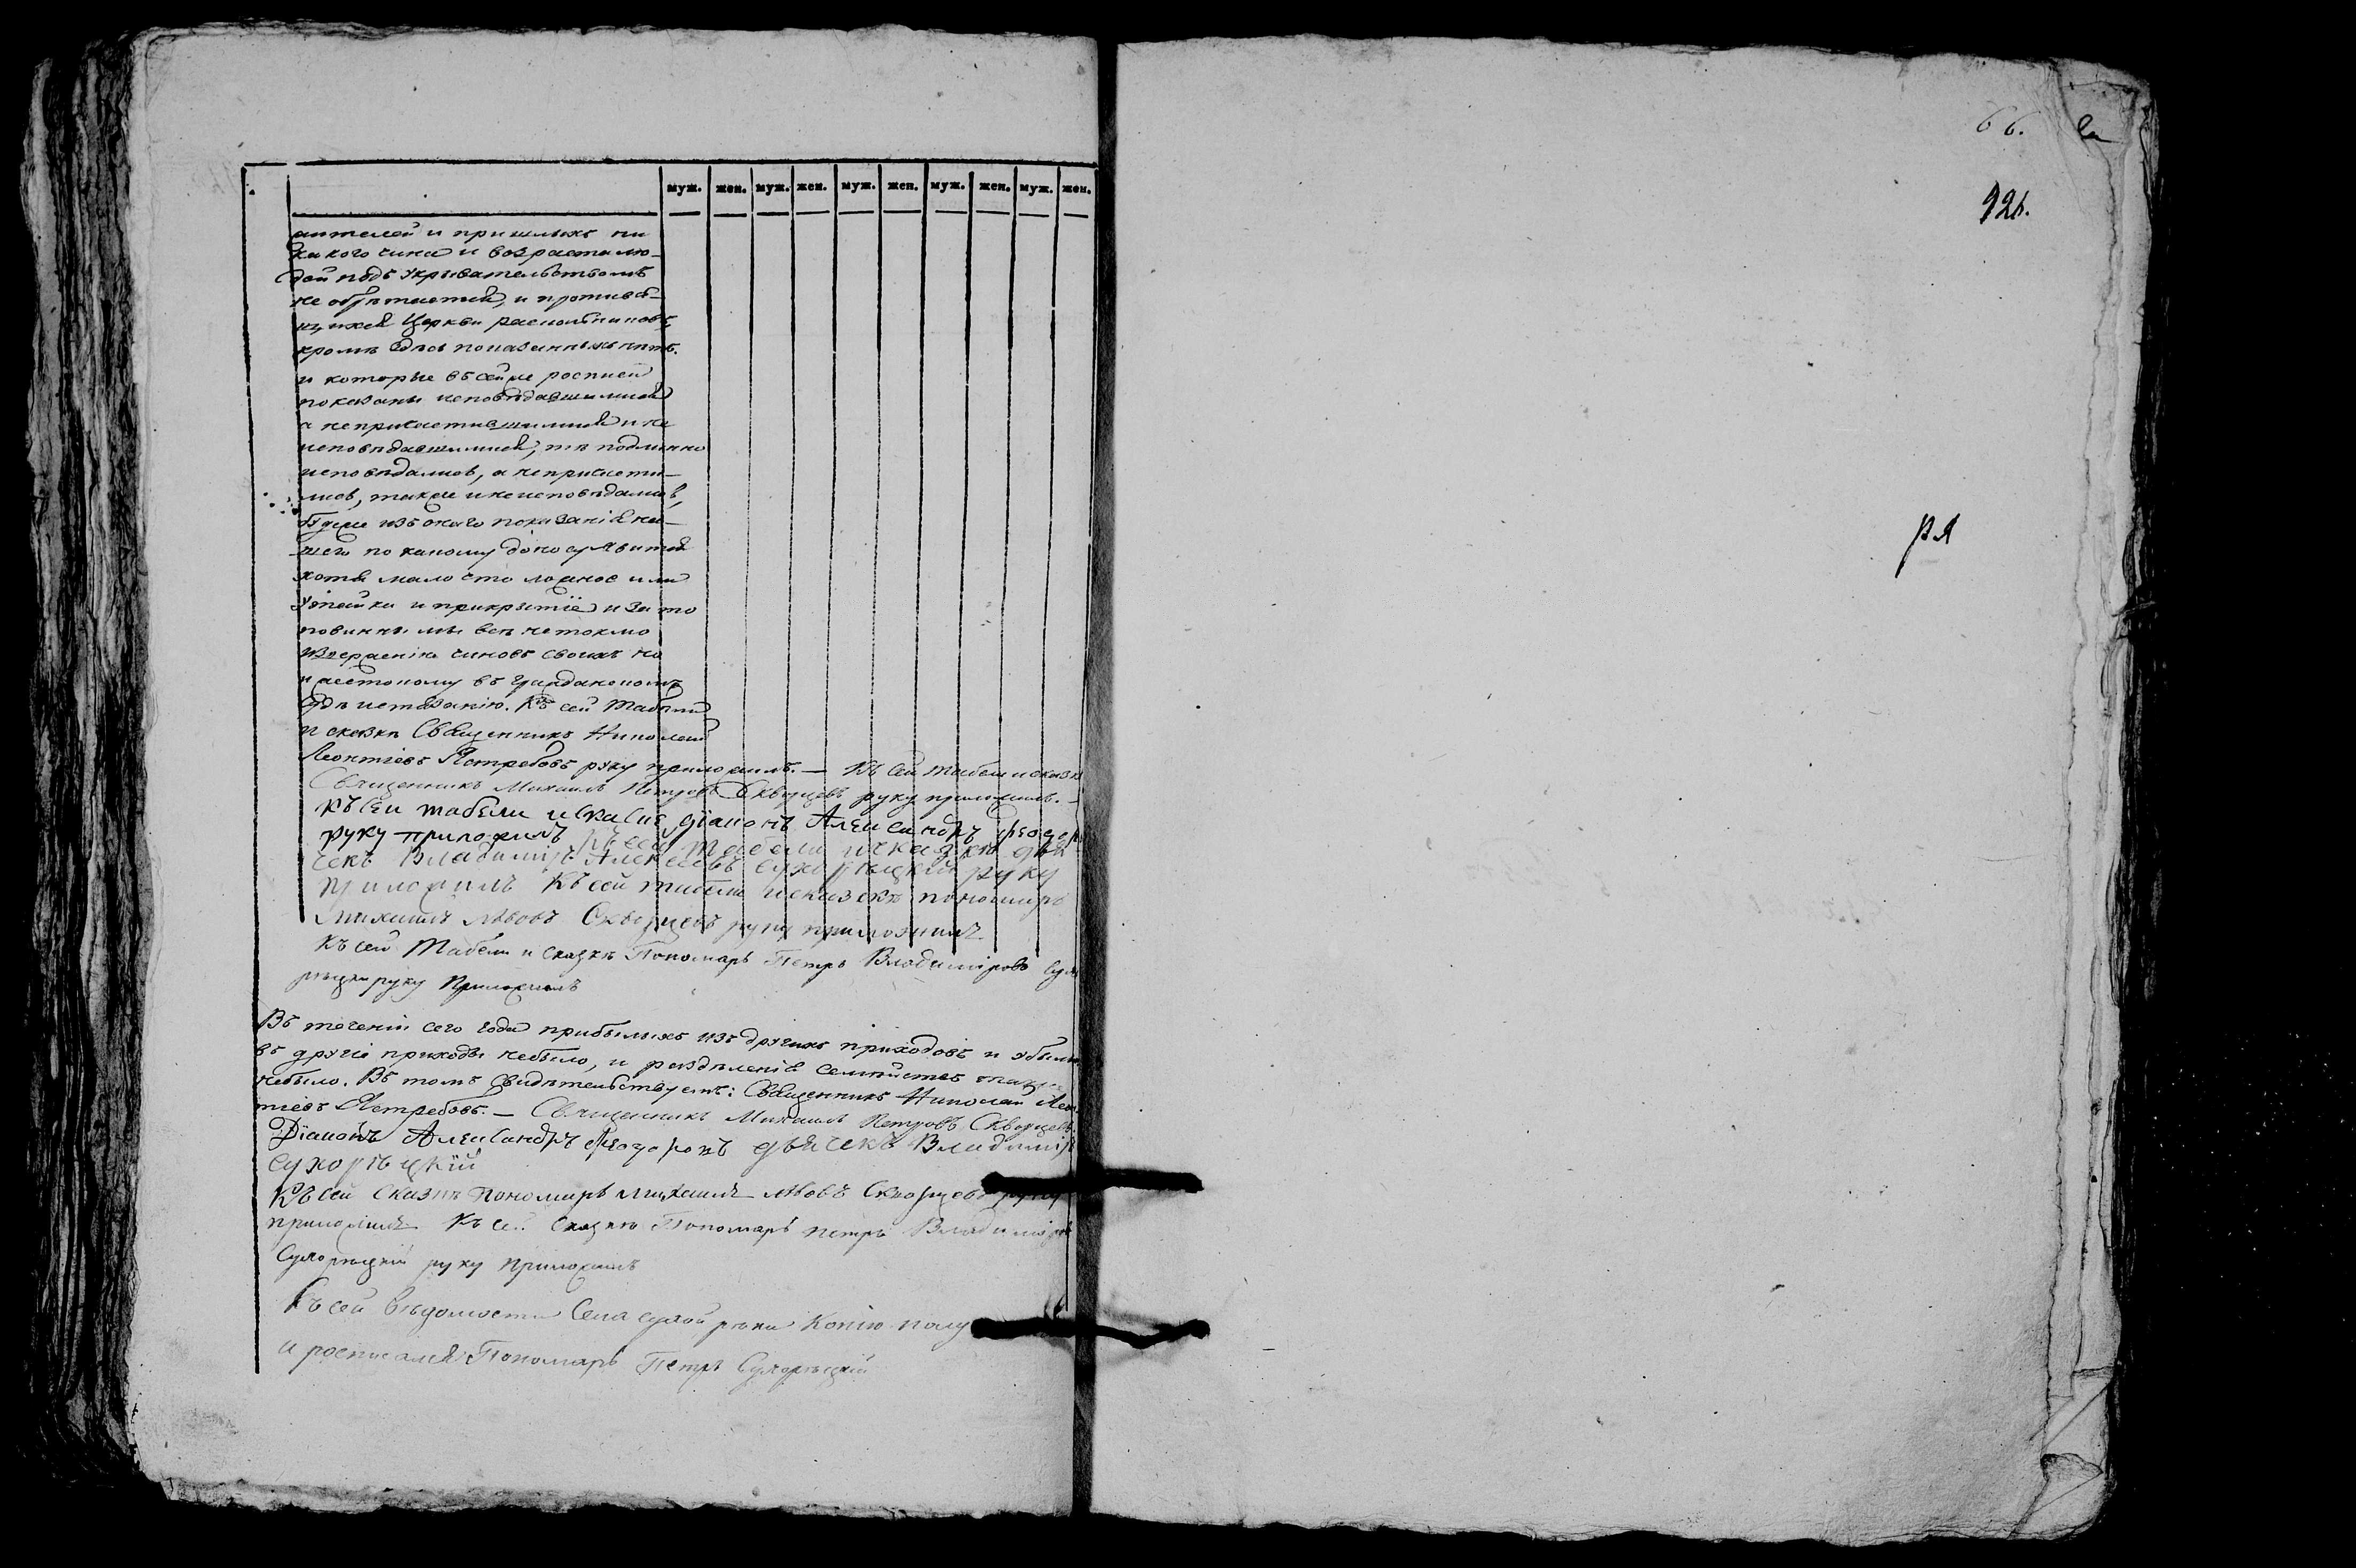 муж. жен. муж. жен. муж. жен. муж. жен. муж. жен.
жителей и пришлыхъ ни
какого чина и возраста лю-
дей подъ укрывательствомъ
не обрѣтается, и противъ-
церкви раскольниковъ,
кромѣ здѣсь показанныхъ нѣтъ.
и которые въ сей же росписи
показаны исповѣдавшимися
а непричастившимися и не
исповѣдавшимися, тѣ подлинно
исповѣдались, а непричасти-
лись, также и неисповѣдались,
буде изъ онаго показанія на-
шего по какому доносу явится
хотя мало что ложное или
утайка и прикрытіе и за то
повинны мы всѣ нетокмо
изверженію чиновъ своихъ но
и жестокому въ гражданскомъ
судѣ истязанію. Къ сей табели
и сказкѣ Священникъ Николай
Леонтіевъ Ястребовъ руку приложилъ. — Къ сей табели и сказкѣ
Священникъ Михаилъ Петровъ Скворцевъ руку приложилъ. —
Къ сей табели и сказке діаконъ Александръ Феодоро
руку приложилъ Къ сей табели и сказкѣ дья-
чекъ Владимиръ Алексеевъ Сухорѣцкій руку
приложилъ Къ сей табели и сказкѣ пономарь
Михаилъ Львовъ Скворцевъ руку приложилъ
Къ сей табели и сказкѣ Пономарь Петръ Владиміровъ Сухо
рѣцкій руку приложилъ
Въ теченіи сего года прибылыхъ изъ другихъ приходовъ и убылы
въ другіе приходы небыло, и раздѣленія семействъ также
небыло. Въ томъ свидѣтельствуемъ: Священникъ Николай Леон
тіевъ Ястребовъ. — Священникъ Михаилъ Петровъ Скворцевъ.
Діаконъ Александръ Феодоровъ дьячекъ Владимиръ
Сухорѣцкій
Къ сей сказкѣ пономарь Михаилъ Львовъ Скворцевъ руку
приложилъ Къ сей сказкѣ Пономарь Петръ Владиміровъ
Сухорѣцкій руку приложилъ
Къ сей вѣдомости Села Сухой рѣки Копію полу
и росписался Пономарь Петръ Сухорѣцкій
66.
921.
ря